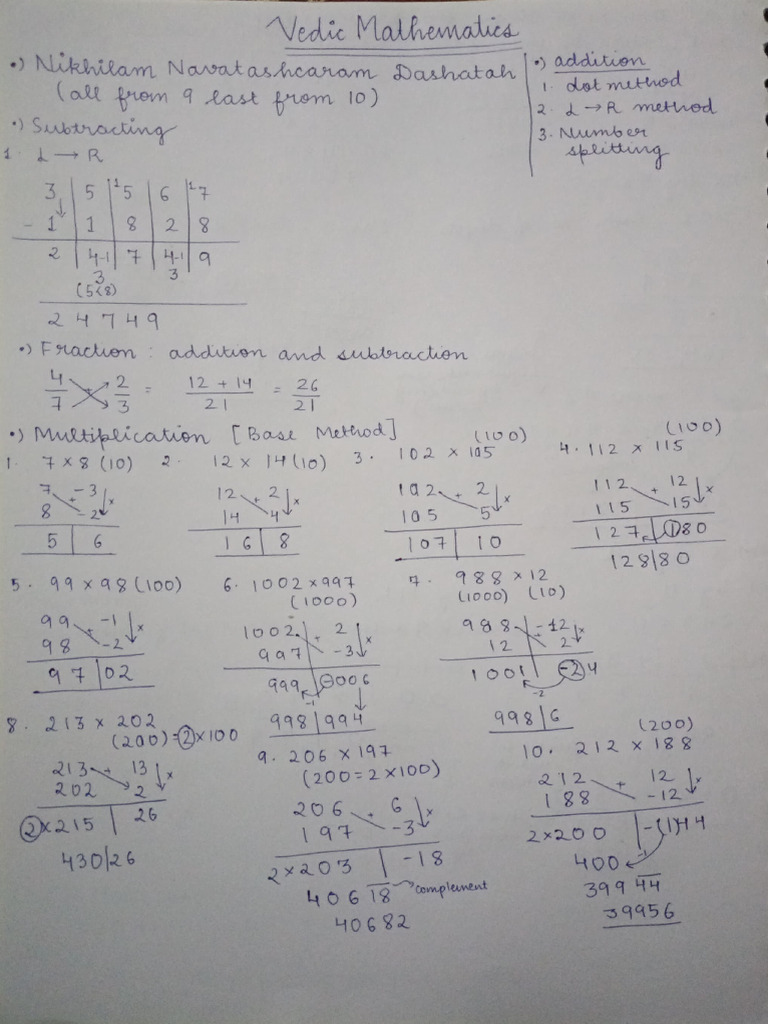 Vedic Mathematics
•) Nikhilam Navatashcaram Dashatah
(all from 9 last from 10)
•) addition
1. dot method
2. L → R method
3. Number
splitting
•) Subtracting
1. L → R
3 | 5 | ¹5 | 6 | ¹7
- 1 | 1 | 8 | 2 | 8
2 | 4-1 | 7 | 4-1 | 9
3 3
(5<8)
2 4 7 4 9
•) Fraction : addition and subtraction
4/7 + 2/3 = 12 + 14 / 21 = 26/21
•) Multiplication [Base Method]
1. 7 x 8 (10)
7 + -3
8 -2 ↓x
5 | 6
2. 12 x 14 (10)
12 + 2
14 4 ↓x
16 | 8
3. 102 x 105 (100)
102 + 2
105 5 ↓x
107 | 10
4. 112 x 115 (100)
112 + 12
115 15 ↓x
127 | ①80
128/80
5. 99 x 98 (100)
99 + -1
98 -2 ↓x
97 | 02
6. 1002 x 997
(1000)
1002 + 2
997 -3 ↓x
999 | -006
-1
998 | 994
7. 988 x 12
(1000) (10)
988 + -12
12 2 ↓x
1001 | -24
-2
998 | 6
8. 213 x 202
(200) = ② x 100
213 + 13
202 2 ↓x
② x 215 | 26
430/26
9. 206 x 197
(200 = 2 x 100)
206 + 6
197 -3 ↓x
2 x 203 | -18
406 18 → complement
40682
10. 212 x 188 (200)
212 + 12
188 -12 ↓x
2 x 200 | -(1)44
-1
400
399 44
39956